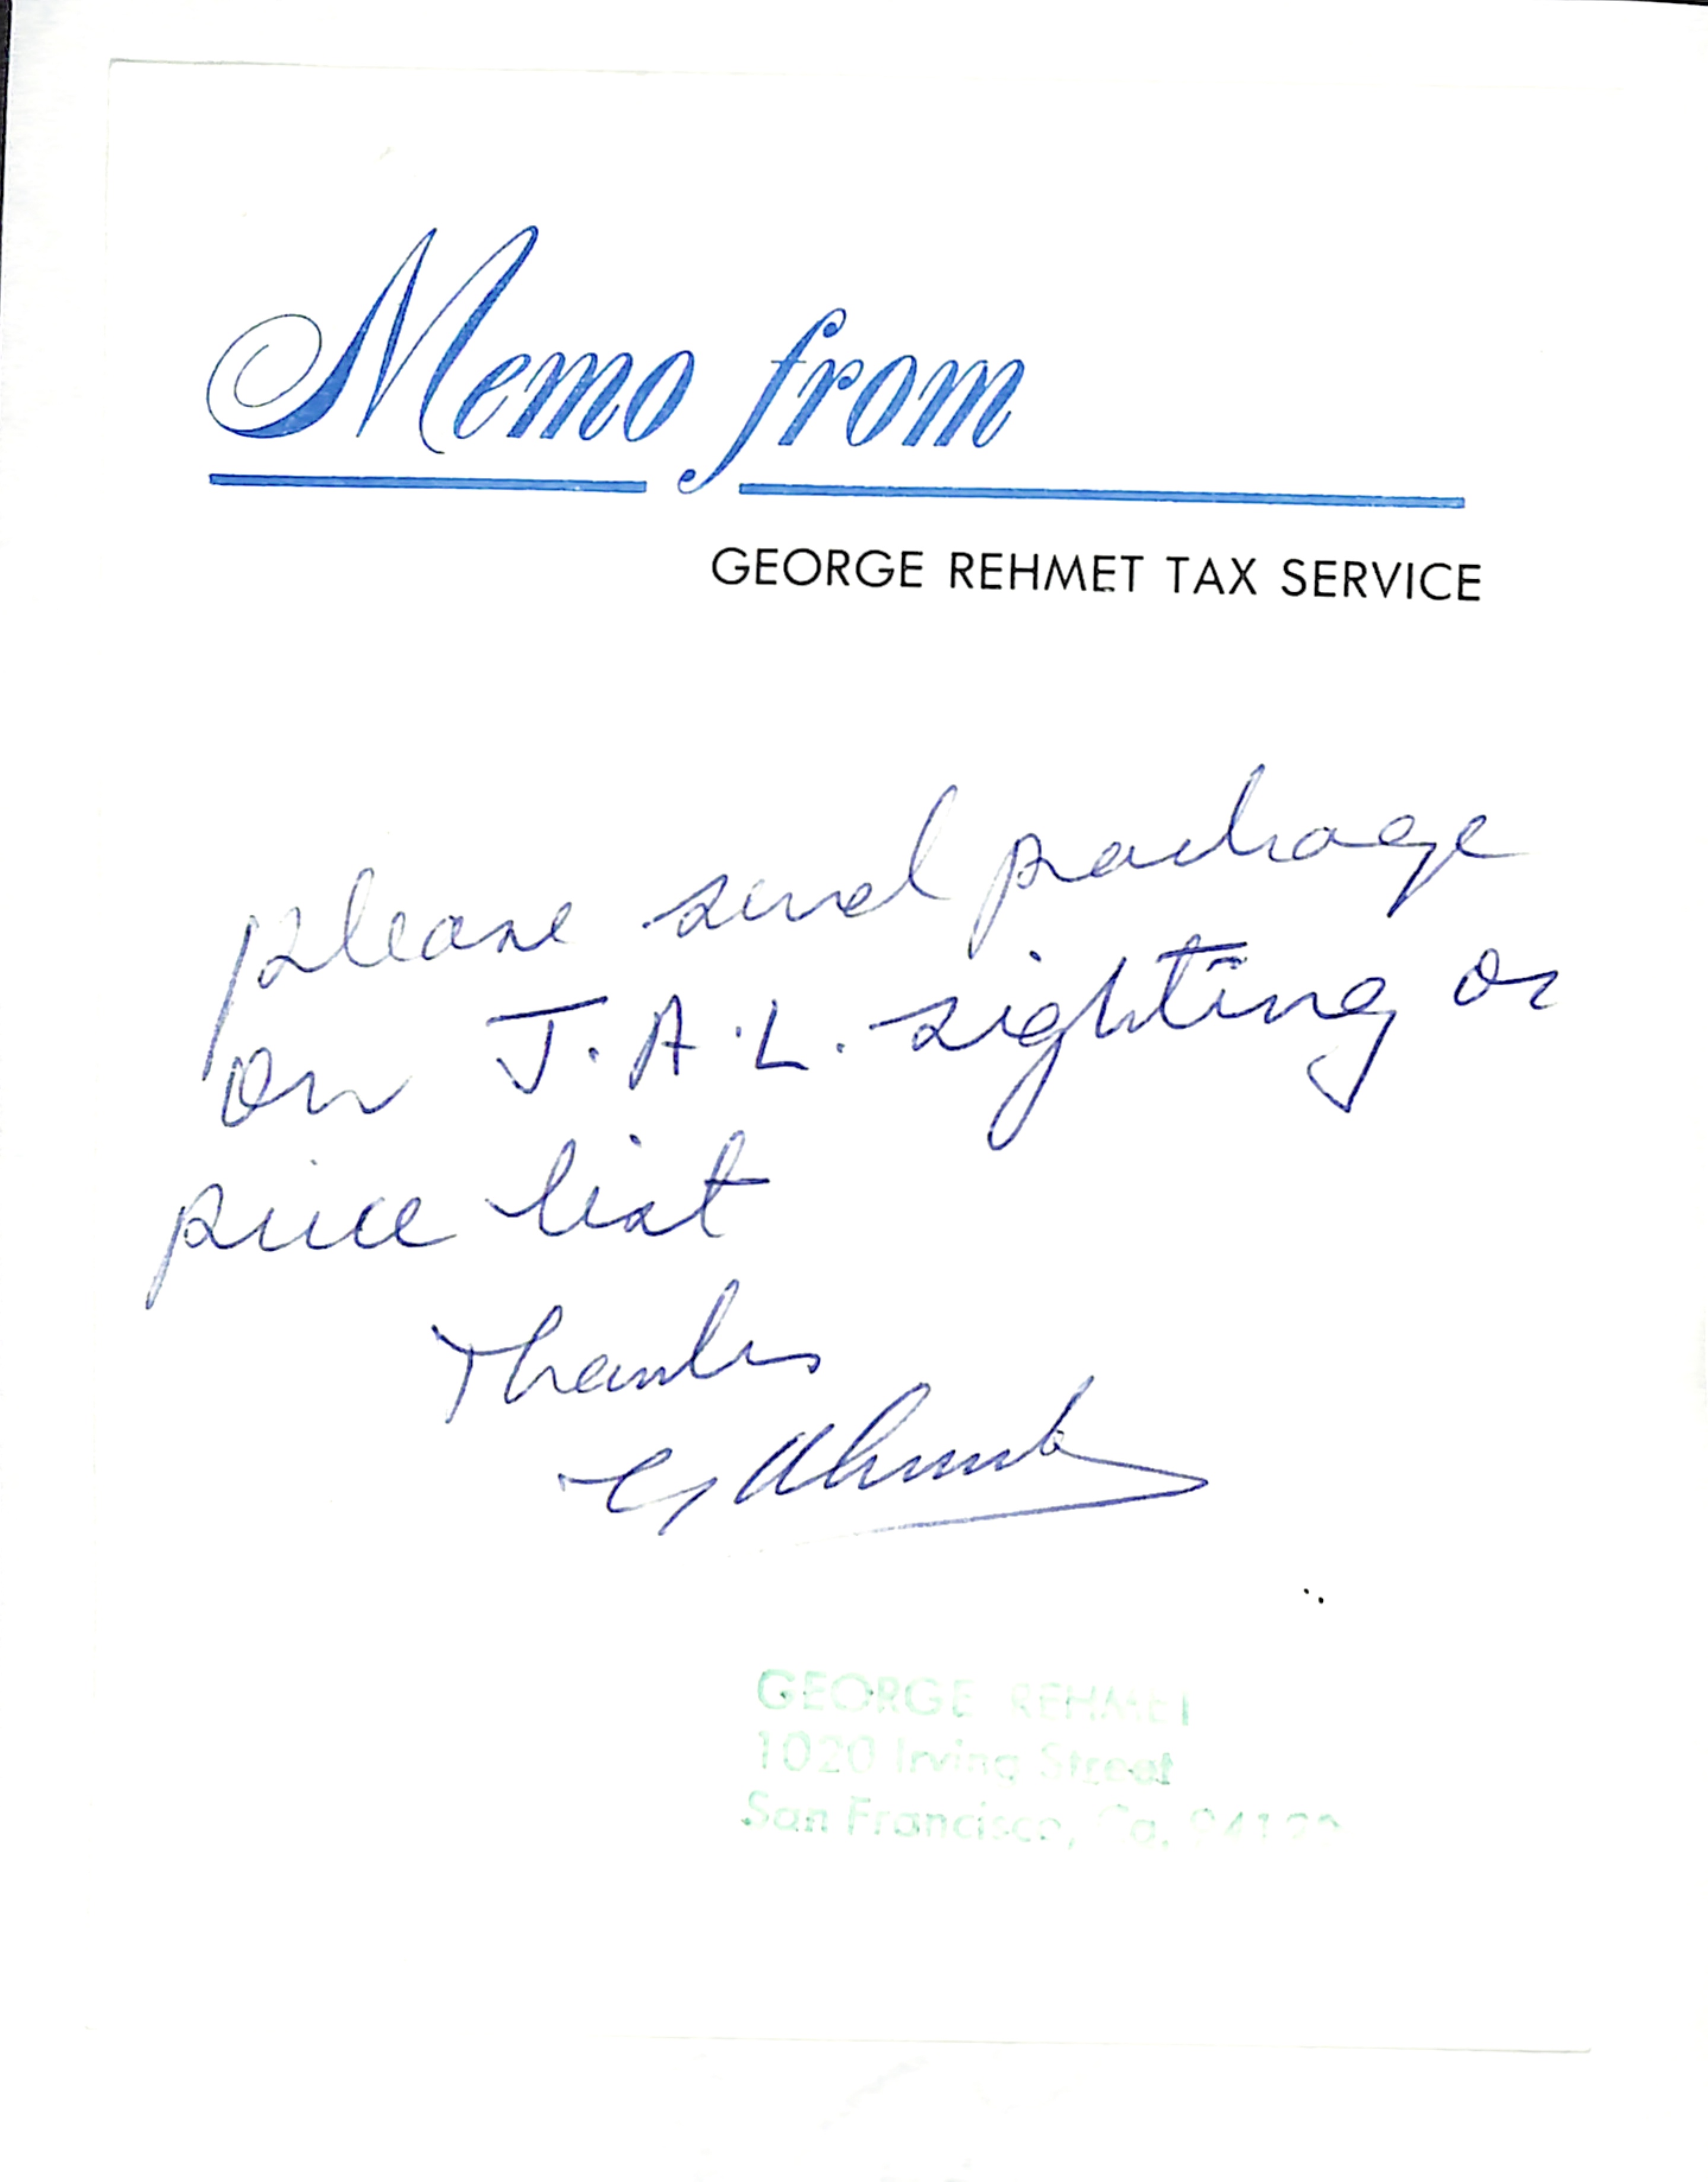 Memo from
GEORGE REHMET TAX SERVICE
please send package
on J.A.L. sighting or
price list
Thanks
G Rehmet
GEORGE REHMET
1020 Irving Street
San Francisco, Ca.